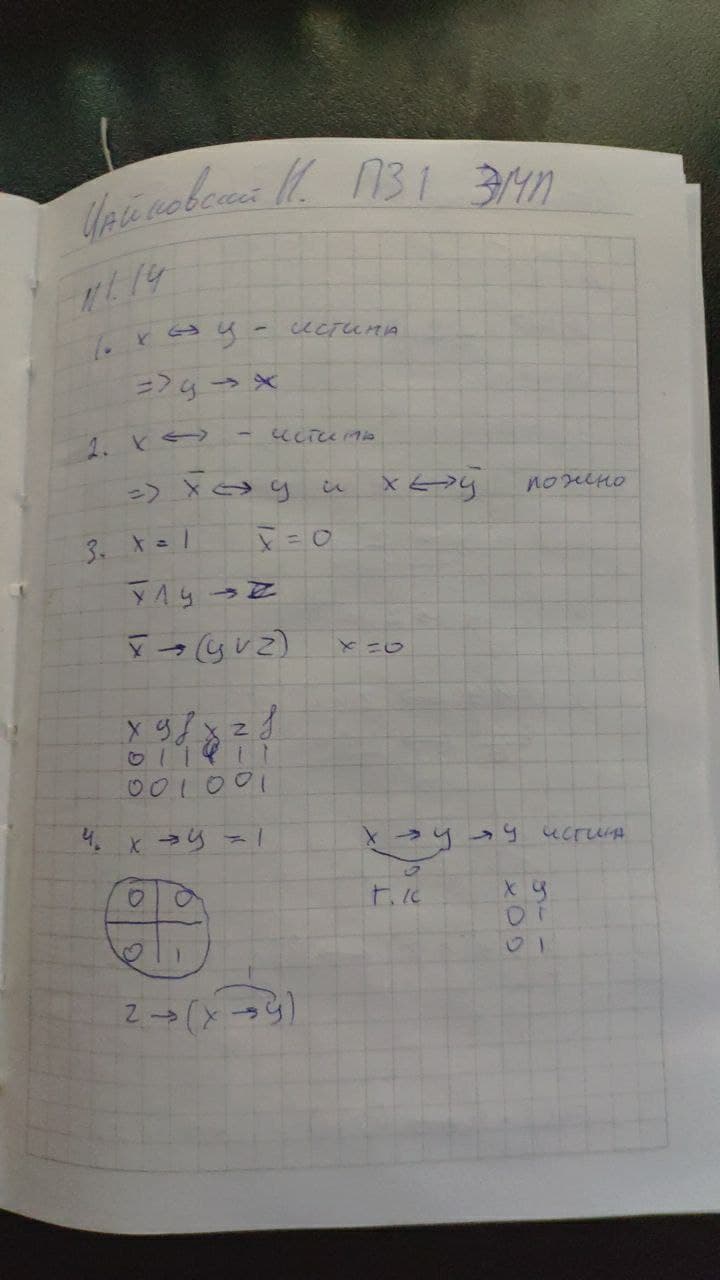 Чайковский Н. ПЗ1 ЭМЛ
№1.14
1. x ↔ y - истина
=> y → x
2. x ↔ - истина
=> x̄ ↔ y и x ↔ ȳ ложно
3. x = 1 x̄ = 0
x̄ ∧ y → z
x̄ → (y ∨ z) x = 0
x y f x z f
0 1 1 1 1
0 0 1 0 0 1
4. x → y = 1 x → y → y истина
0
0 0 т.к x y
0 1
0 1 0 1
1
z → (x → y)